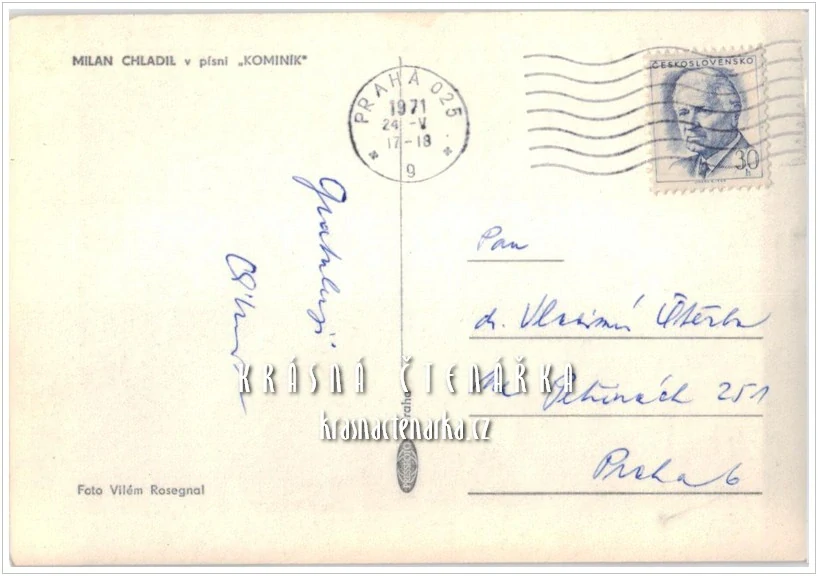 MILAN CHLADIL v písni „KOMINÍK"
PRAHA 025
1971
24 -V
17-18
9
ČESKOSLOVENSKO
30
h
Gratuluji
Pan
dr. Vladimír Štěrba
Na Petřinách 251
Praha 6
KRÁSNÁ ČTENÁŘKA
krasnactenarka.cz
Praha
Foto Vilém Rosegnal